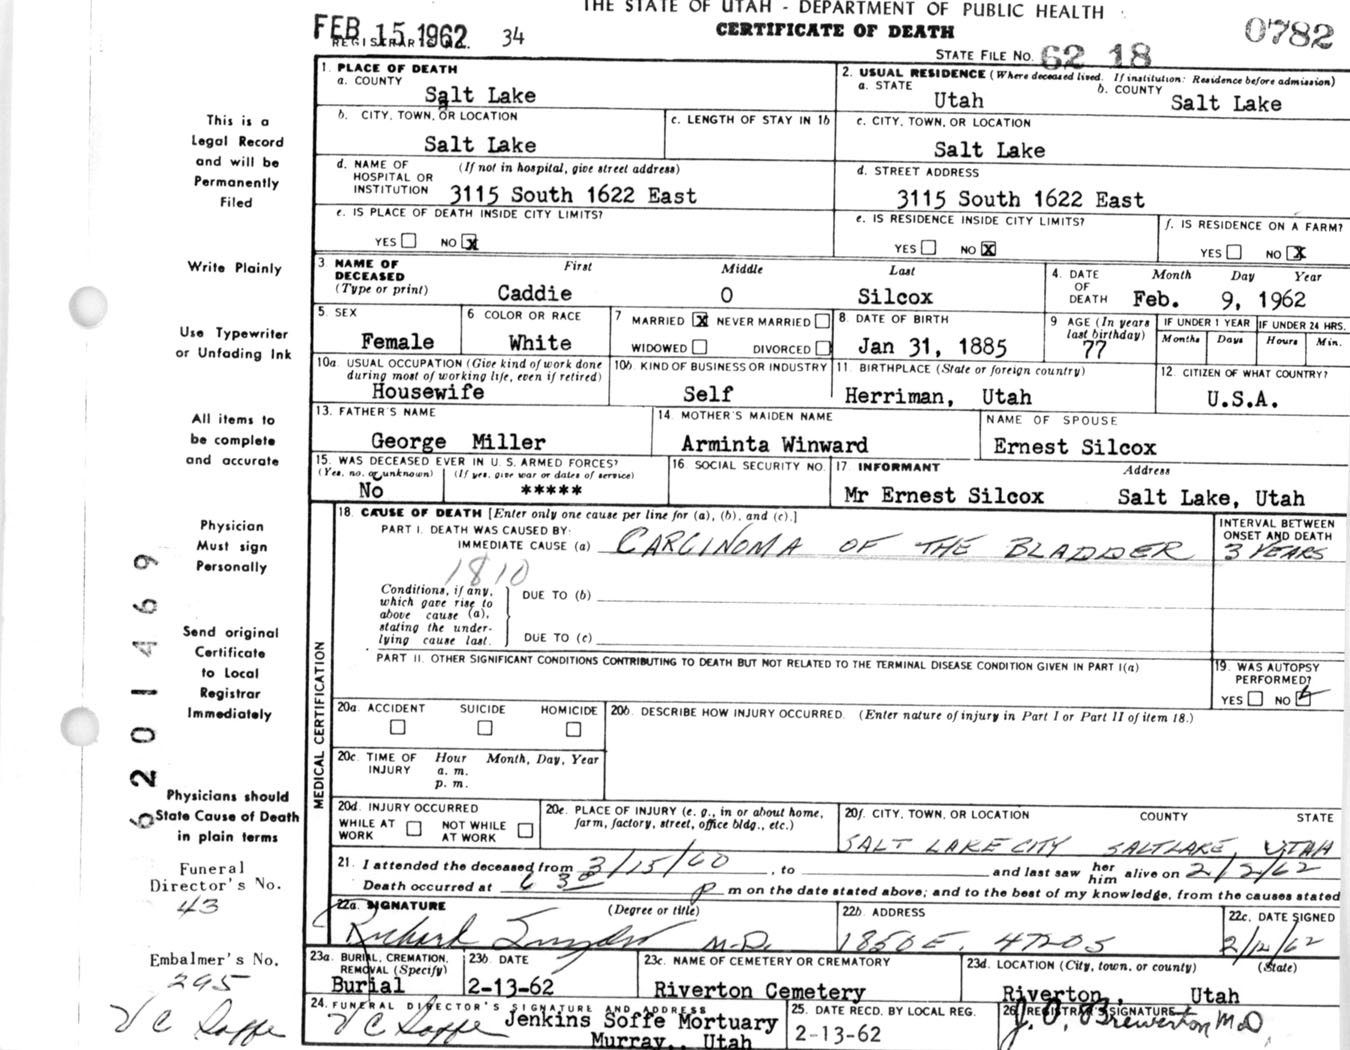 THE STATE OF UTAH - DEPARTMENT OF PUBLIC HEALTH
FEB 15 1962
REGISTRAR
34
CERTIFICATE OF DEATH
0782
STATE FILE NO. 62 18
1. PLACE OF DEATH
a. COUNTY
Salt Lake
2. USUAL RESIDENCE (Where deceased lived. If institution: Residence before admission)
a. STATE
Utah
b. COUNTY
Salt Lake
b. CITY, TOWN, OR LOCATION
Salt Lake
c. LENGTH OF STAY IN 1b
c. CITY, TOWN, OR LOCATION
Salt Lake
d. NAME OF HOSPITAL OR INSTITUTION
(If not in hospital, give street address)
3115 South 1622 East
d. STREET ADDRESS
3115 South 1622 East
e. IS PLACE OF DEATH INSIDE CITY LIMITS?
YES NO X
e. IS RESIDENCE INSIDE CITY LIMITS?
YES NO X
f. IS RESIDENCE ON A FARM?
YES NO X
3. NAME OF DECEASED (Type or print)
First Middle Last
Caddie O Silcox
4. DATE OF DEATH
Month Day Year
Feb. 9, 1962
5. SEX
Female
6 COLOR OR RACE
White
7 MARRIED X NEVER MARRIED
WIDOWED DIVORCED
8. DATE OF BIRTH
Jan 31, 1885
9 AGE (In years last birthday)
77
IF UNDER 1 YEAR
Months Days
IF UNDER 24 HRS.
Hours Min.
10a. USUAL OCCUPATION (Give kind of work done during most of working life, even if retired)
Housewife
10b. KIND OF BUSINESS OR INDUSTRY
Self
11. BIRTHPLACE (State or foreign country)
Herriman, Utah
12. CITIZEN OF WHAT COUNTRY?
U.S.A.
13. FATHER'S NAME
George Miller
14. MOTHER'S MAIDEN NAME
Arminta Winward
NAME OF SPOUSE
Ernest Silcox
15. WAS DECEASED EVER IN U. S. ARMED FORCES?
(Yes, no, or unknown) (If yes, give war or dates of service)
No *****
16. SOCIAL SECURITY NO.
17. INFORMANT Address
Mr Ernest Silcox Salt Lake, Utah
18. CAUSE OF DEATH [Enter only one cause per line for (a), (b), and (c).]
PART I. DEATH WAS CAUSED BY:
IMMEDIATE CAUSE (a) CARCINOMA OF THE BLADDER
INTERVAL BETWEEN ONSET AND DEATH
3 YEARS
1810
Conditions, if any, which gave rise to above cause (a), stating the underlying cause last.
DUE TO (b)
DUE TO (c)
PART II. OTHER SIGNIFICANT CONDITIONS CONTRIBUTING TO DEATH BUT NOT RELATED TO THE TERMINAL DISEASE CONDITION GIVEN IN PART I(a)
19. WAS AUTOPSY PERFORMED?
YES NO
MEDICAL CERTIFICATION
20a. ACCIDENT SUICIDE HOMICIDE
20b. DESCRIBE HOW INJURY OCCURRED. (Enter nature of injury in Part I or Part II of item 18.)
20c. TIME OF INJURY
Hour Month, Day, Year
a. m.
p. m.
20d. INJURY OCCURRED
WHILE AT WORK NOT WHILE AT WORK
20e. PLACE OF INJURY (e. g., in or about home, farm, factory, street, office bldg., etc.)
20f. CITY, TOWN, OR LOCATION COUNTY STATE
SALT LAKE CITY SALT LAKE, UTAH
21. I attended the deceased from 3/15/60, to and last saw her him alive on 2/2/62
Death occurred at 6 30 p m on the date stated above; and to the best of my knowledge, from the causes stated
22a. SIGNATURE (Degree or title)
Richard Snyder M.D.
22b. ADDRESS
1850 E. 4720 S
22c. DATE SIGNED
2/12/62
23a. BURIAL, CREMATION, REMOVAL (Specify)
Burial
23b. DATE
2-13-62
23c. NAME OF CEMETERY OR CREMATORY
Riverton Cemetery
23d. LOCATION (City, town, or county) (State)
Riverton, Utah
24. FUNERAL DIRECTOR'S SIGNATURE AND ADDRESS
V C Soffe Jenkins Soffe Mortuary
Murray,, Utah
25. DATE RECD. BY LOCAL REG.
2-13-62
26. REGISTRAR'S SIGNATURE
J. O. Brewerton M.D.
This is a
Legal Record
and will be
Permanently
Filed
Write Plainly
Use Typewriter
or Unfading Ink
All items to
be complete
and accurate
Physician
Must sign
Personally
Send original
Certificate
to Local
Registrar
Immediately
Physicians should
State Cause of Death
in plain terms
Funeral
Director's No.
43
Embalmer's No.
295
V C Soffe
6201469